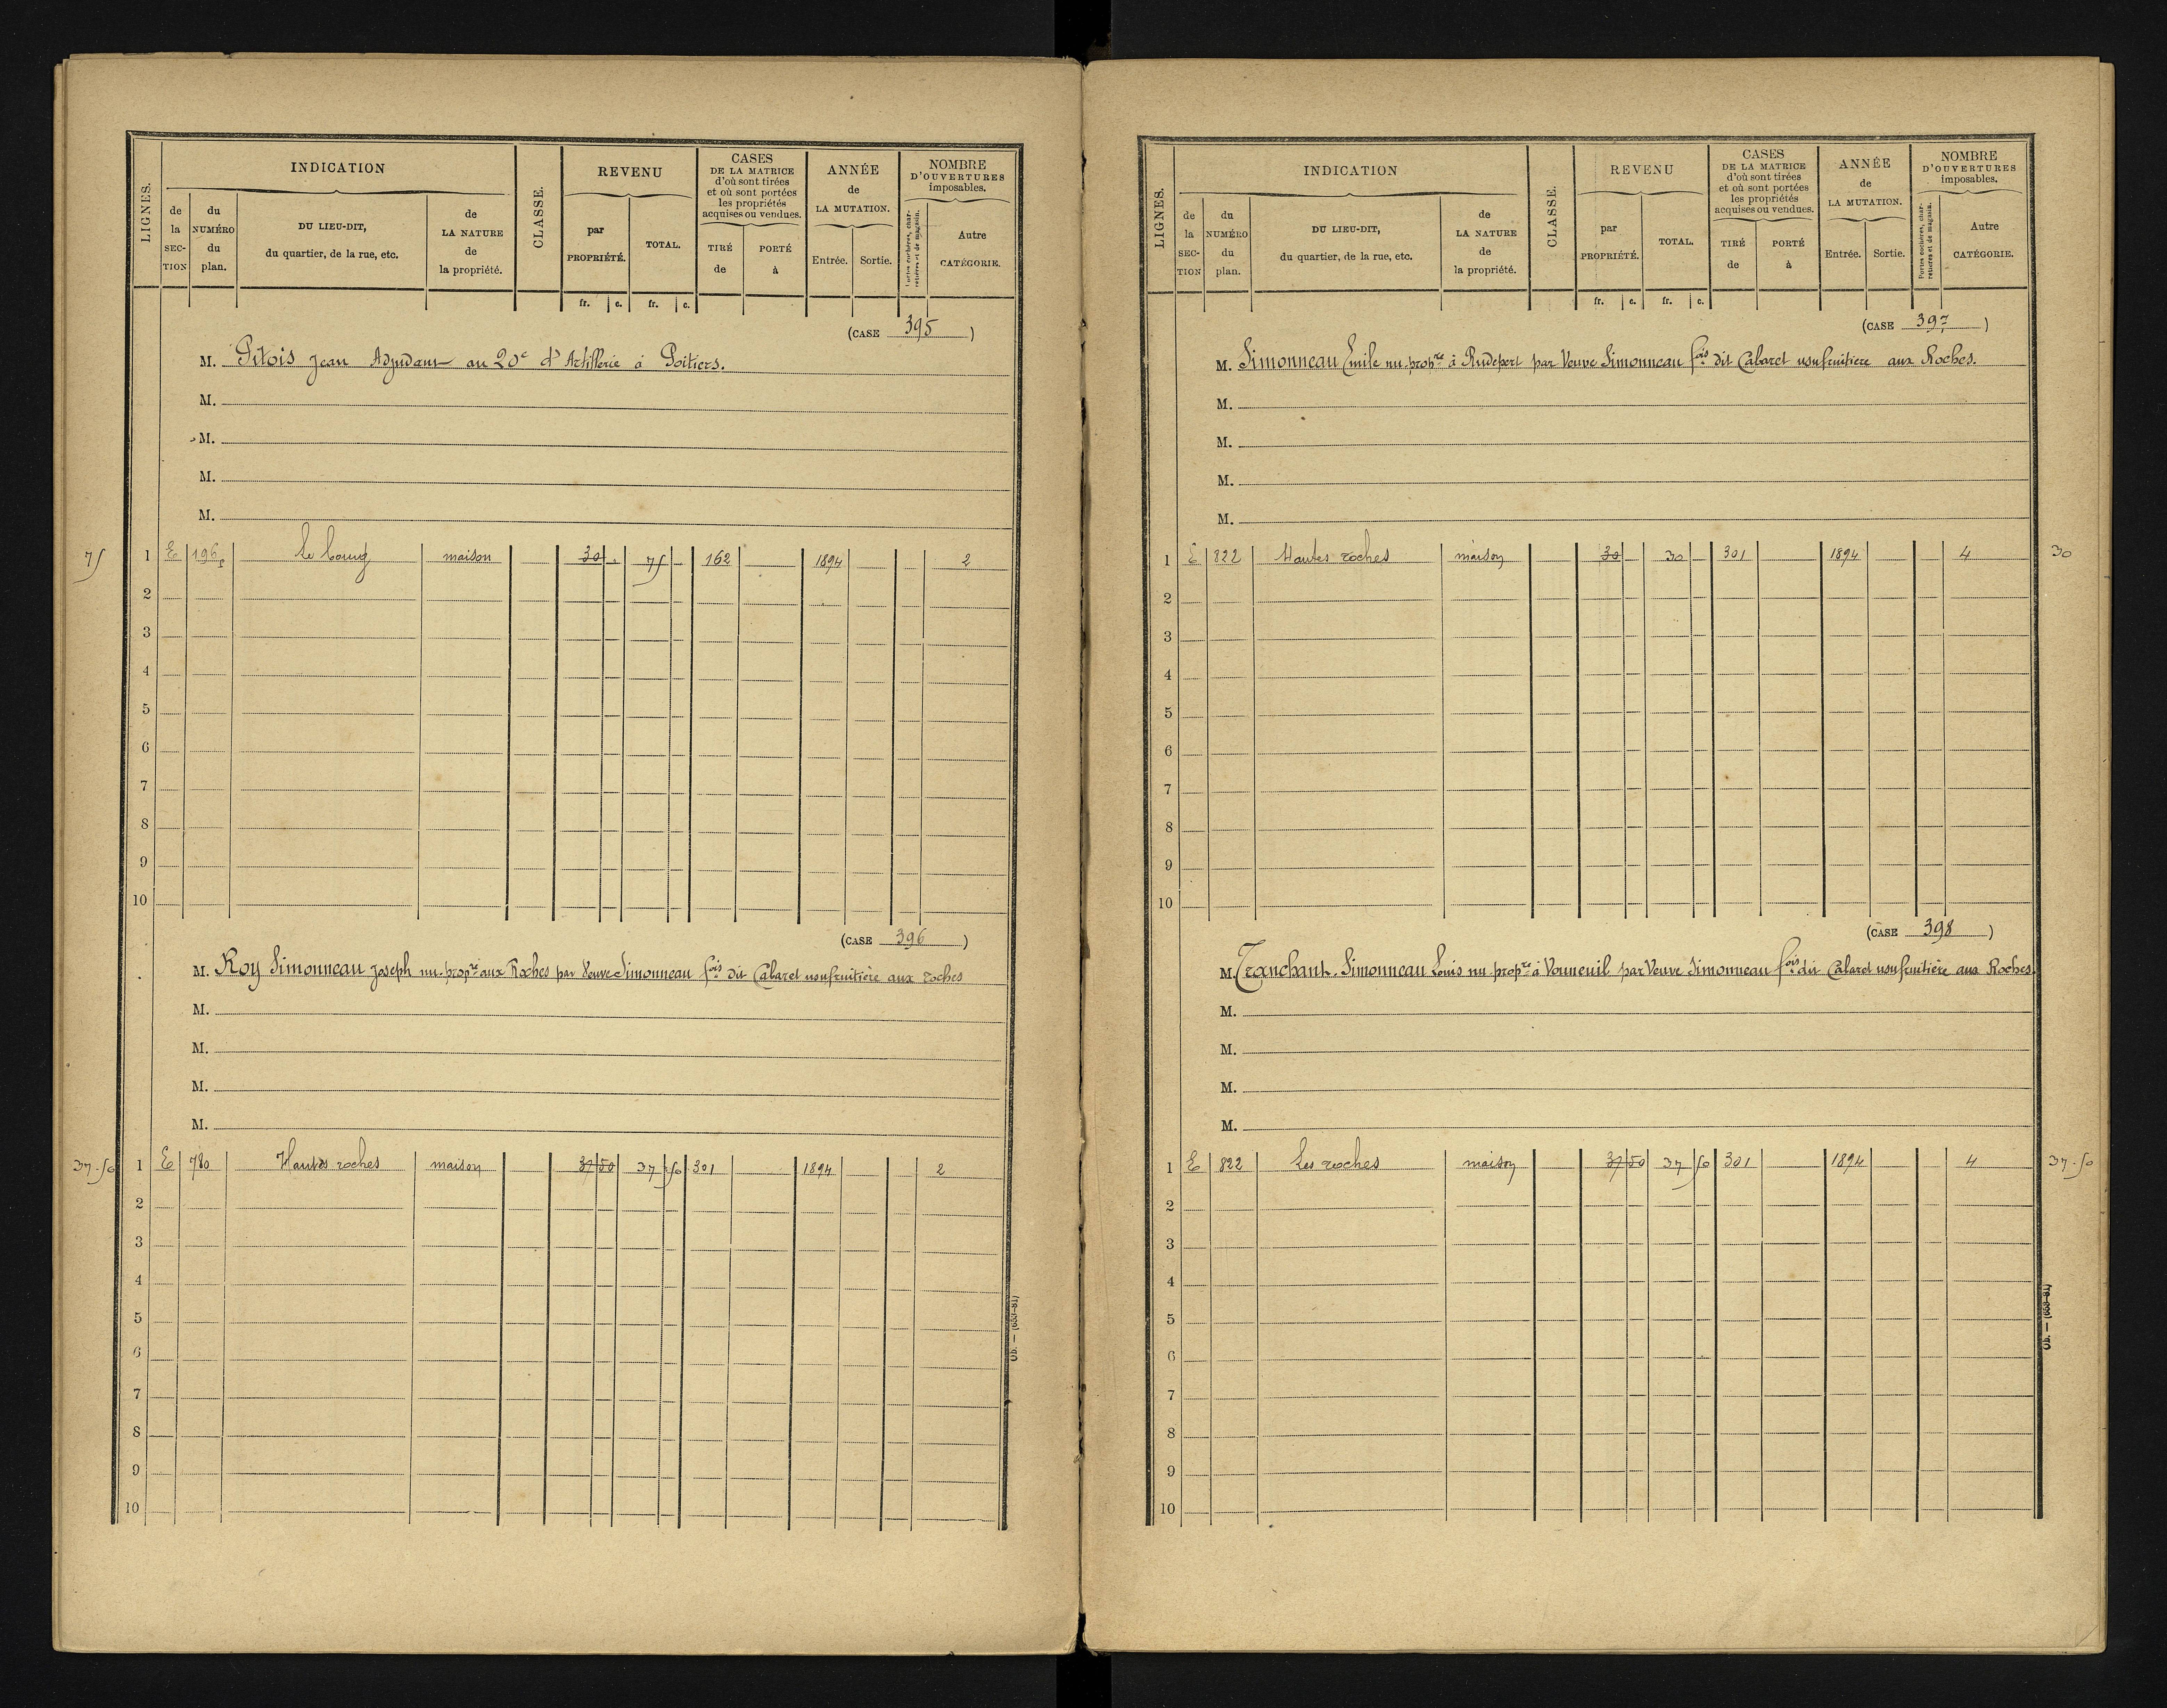 LIGNES.
INDICATION
CLASSE.
REVENU
CASES
DE LA MATRICE
d'où sont tirées
et où sont portées
les propriétés
acquises ou vendues.
ANNÉE
de
LA MUTATION.
NOMBRE
D'OUVERTURES
imposables.
de la SEC-TION
du NUMÉRO du plan.
DU LIEU-DIT,
du quartier, de la rue, etc.
de LA NATURE de la propriété.
par PROPRIÉTÉ.
TOTAL.
TIRÉ de
PORTÉ à
Entrée.
Sortie.
Portes cochères, charretières et de magasin.
Autre CATÉGORIE.
fr. c. fr. c.
(CASE 395)
M. Pitois Jean Adjudant au 20e d' Artillerie à Poitiers.
M.
M.
M.
M.
75 1 E 196 le bourg maison 30 . 75 162 1894 2
2
3
4
5
6
7
8
9
10
(CASE 396)
M. Roy Simonneau Joseph nu-propre aux Roches par Veuve Simonneau fois dit Cabaret usufruitière aux roches
M.
M.
M.
M.
37.50 1 E 780 Hautes roches maison 37 50 37 50 301 1894 2
2
3
4
5
6
7
8
9
10
Ob. — (693-81)
LIGNES.
INDICATION
CLASSE.
REVENU
CASES
DE LA MATRICE
d'où sont tirées
et où sont portées
les propriétés
acquises ou vendues.
ANNÉE
de
LA MUTATION.
NOMBRE
D'OUVERTURES
imposables.
de la SEC-TION
du NUMÉRO du plan.
DU LIEU-DIT,
du quartier, de la rue, etc.
de LA NATURE de la propriété.
par PROPRIÉTÉ.
TOTAL.
TIRÉ de
PORTÉ à
Entrée.
Sortie.
Portes cochères, charretières et de magasin.
Autre CATÉGORIE.
fr. c. fr. c.
(CASE 397)
M. Simonneau Emile nu-propre à par Veuve Simonneau fois dit Cabaret usufruitiere aux Roches.
M.
M.
M.
M.
1 E 822 Hautes roches maison 30 30 301 1894 4 30
2
3
4
5
6
7
8
9
10
(CASE 398)
M. Tranchant. Simonneau Louis nu propre à Vouneuil par Veuve Simonneau fois dit Cabaret usufruitière aux Roches.
M.
M.
M.
M.
1 E 822 Les roches maison 37 50 37 50 301 1894 4 37.50
2
3
4
5
6
7
8
9
10
Ob. — (693-81)